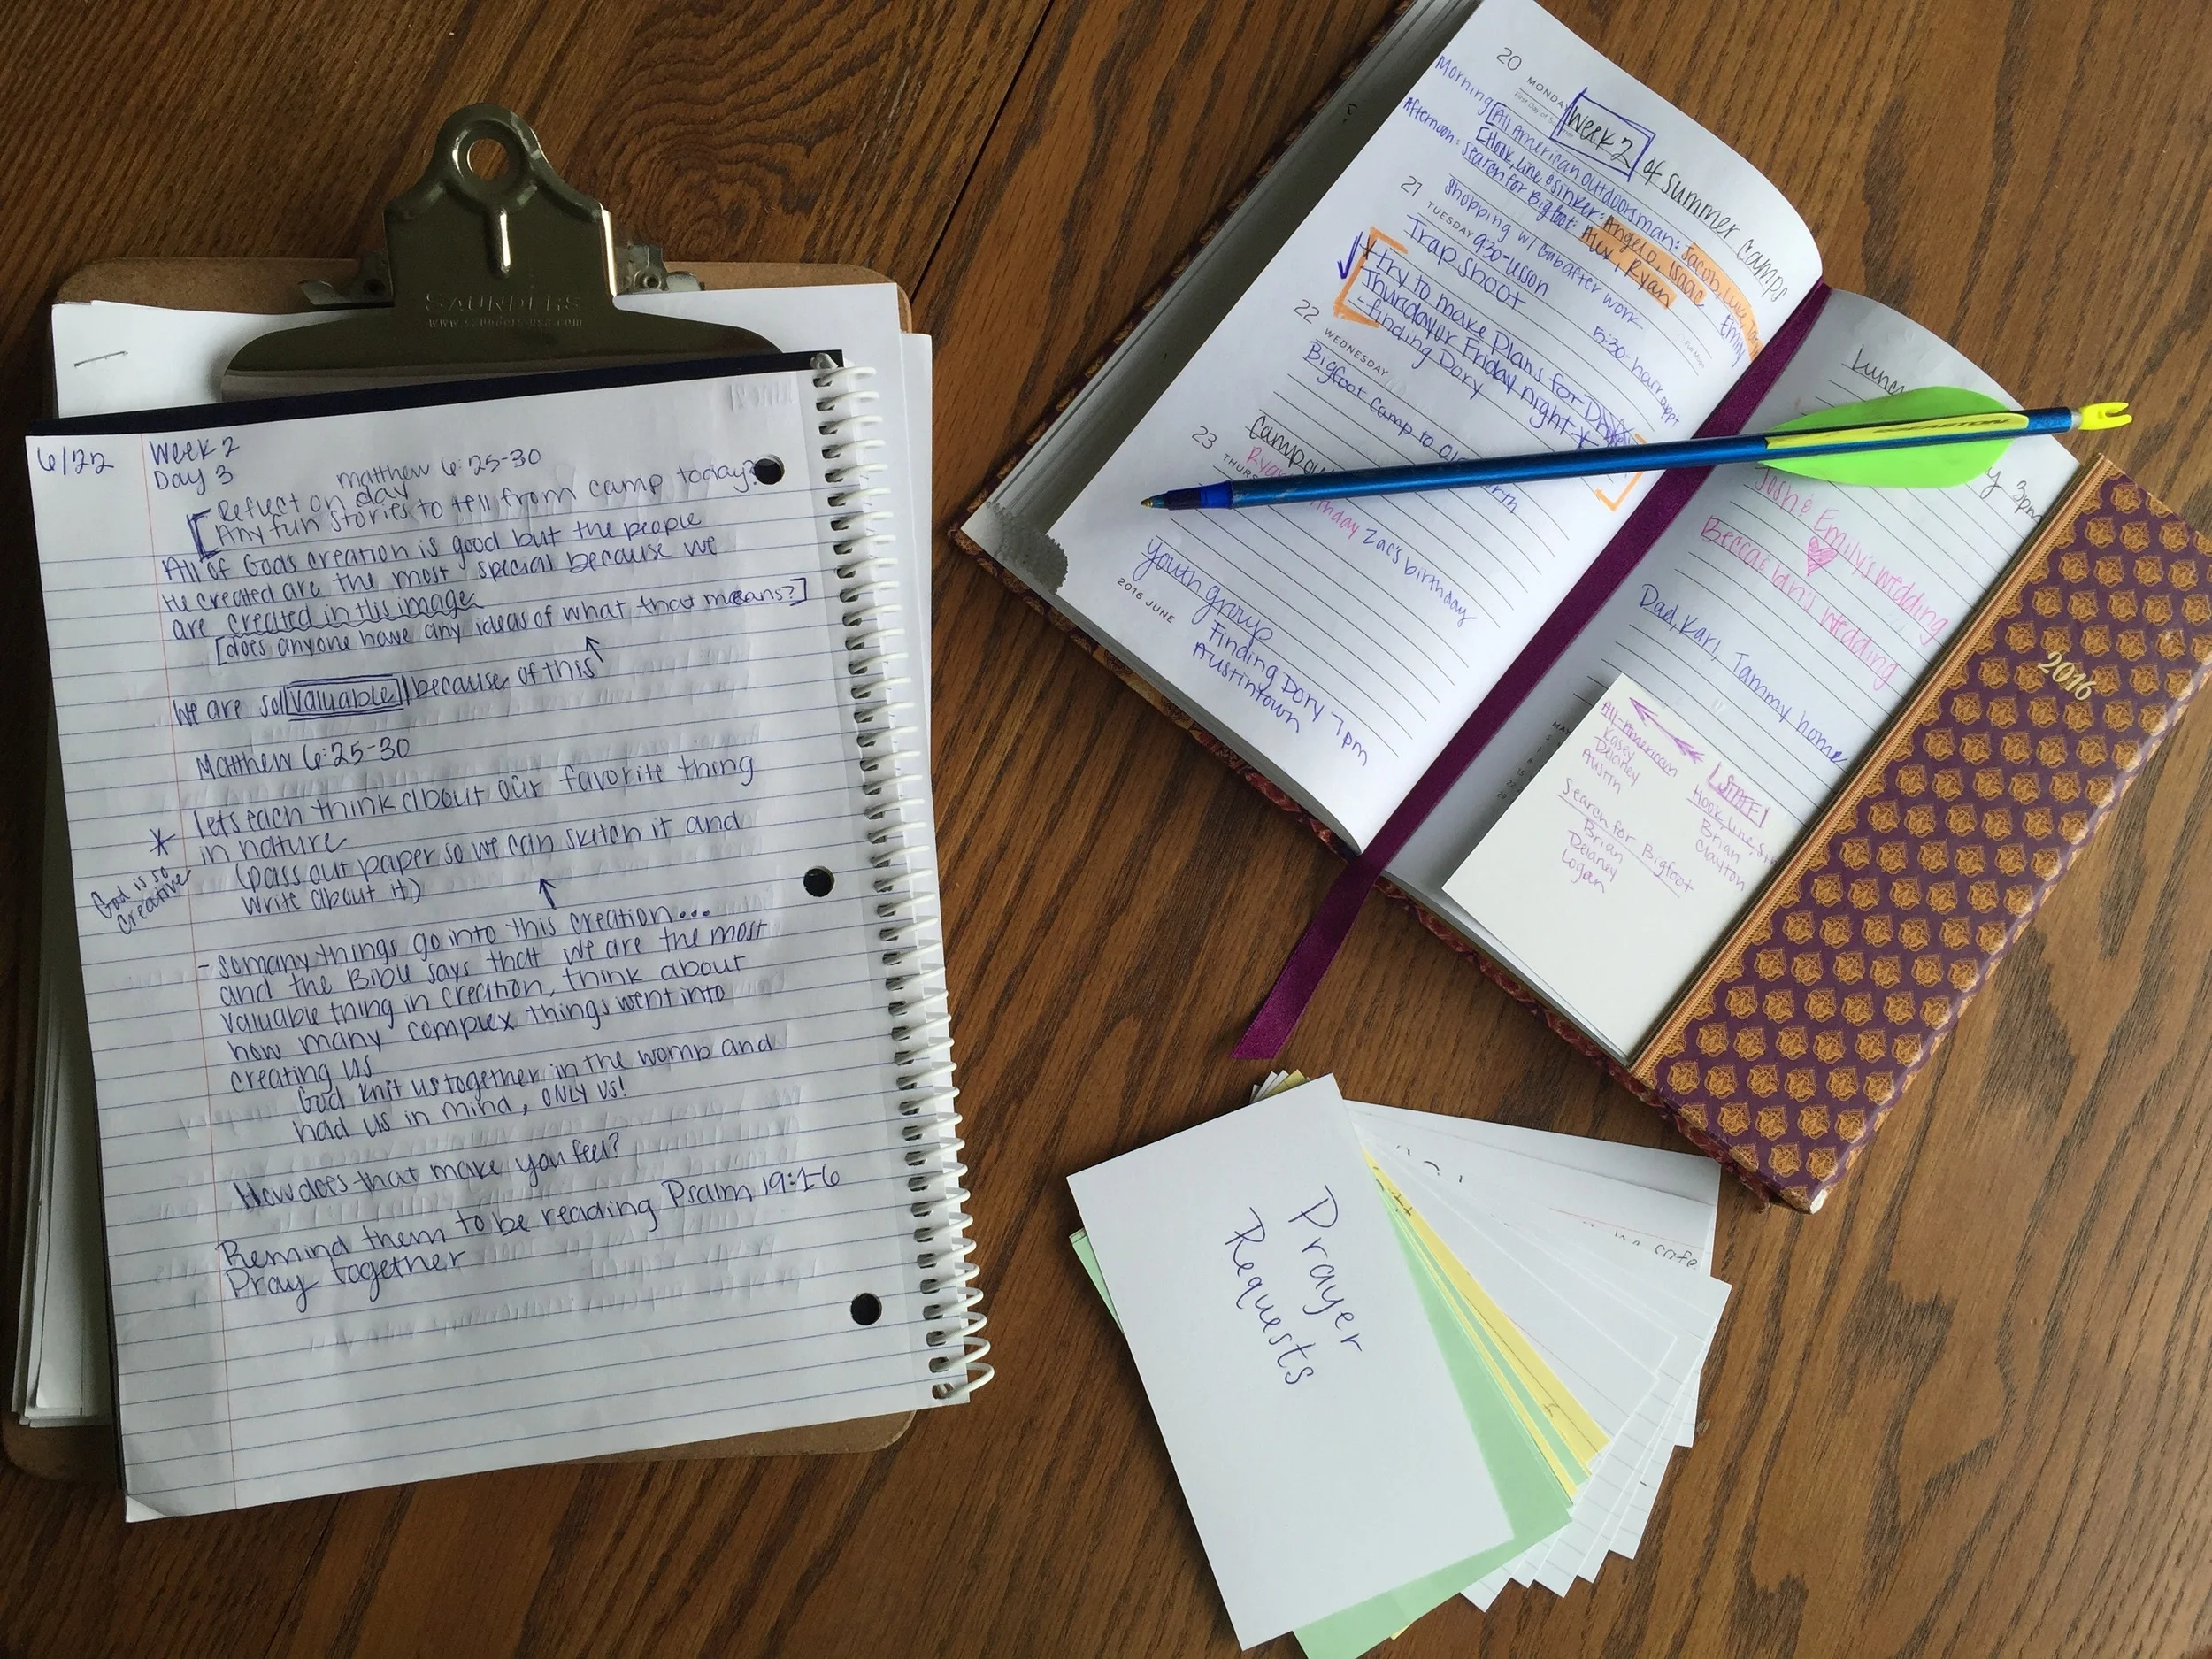 SAUNDERS
www.saunders-usa.com
6/22
Week 2
Day 3
matthew 6:25-30
Reflect on day
Any fun stories to tell from camp today?
All of God's creation is good but the people
He created are the most special because we
are created in His image
[does anyone have any ideas of what that means?]
We are so valuable because of this
Matthew 6:25-30
* lets each think about our favorite thing
in nature
(pass out paper so we can sketch it and
write about it)
God is so
creative
- so many things go into this creation...
and the Bible says that we are the most
valuable thing in creation, think about
how many complex things went into
creating us
God knit us together in the womb and
had us in mind, ONLY US!
How does that make you feel?
Remind them to be reading Psalm 19:1-6
Pray together
20
MONDAY
Week 2 of summer camps
Morning [All American outdoorsman: Jacob, Luke,
[Hook, Line & Sinker: Angelo, Isaac
Afternoon: Search for Bigfoot: Alex, Ryan
Emily
Shopping w/ Gab after work
21
TUESDAY
9:30-lesson
5:30-hair appt
Trap shoot
* try to make plans for
Thursday or Friday night *
- Finding Dory
22
WEDNESDAY
Bigfoot Camp to
Campout
23
THURS
Zac's birthday
youth group
Finding Dory 7pm
Austintown
2016 JUNE
EASTON
3pm
Josh & Emily's wedding
Becca & Ian's wedding
Dad, Kari, Tammy home
2016
All-American
Kasey
Delaney
Austin
STAFF!
Hook, Line,
Brian
Clayton
Search for Bigfoot
Brian
Delaney
Logan
Prayer
Requests